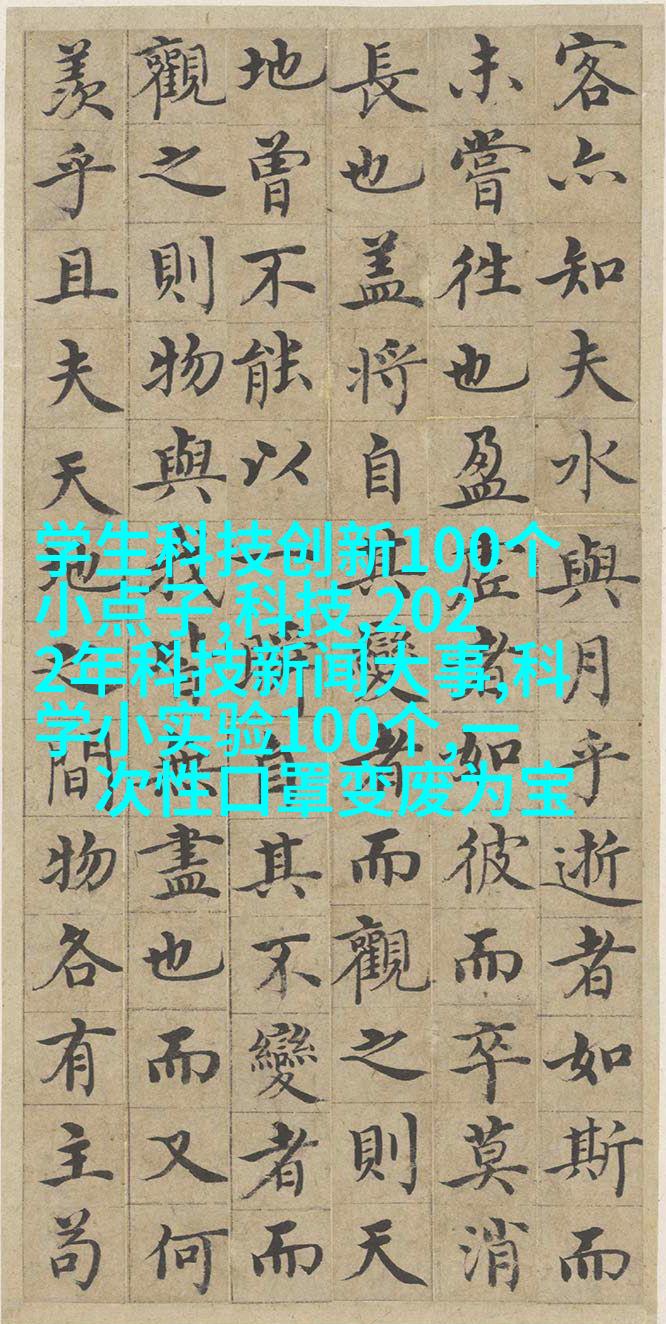 客亦知夫水與月乎逝者如斯而
未嘗徃也盈虛者如彼而卒莫消
長也盖將自其變者而觀之則天
地曾不能以一瞬自其不變者而
觀之則物與我皆無盡也而又何
羨乎且夫天地之間物各有主苟
学生科技创新100个
小点子,科技,202
2年科技新闻大事,科
学小实验100个,一
次性口罩变废为宝